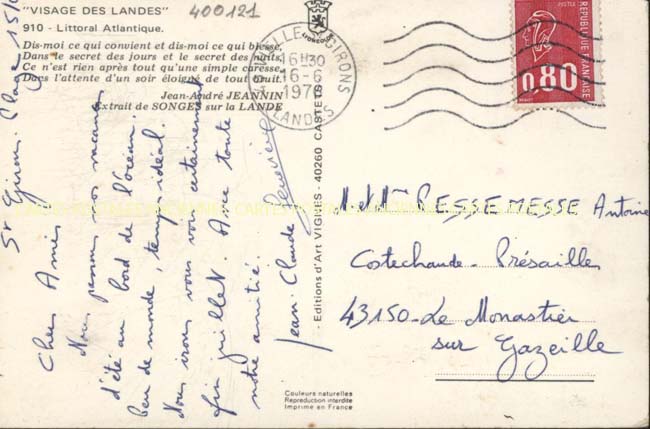 "VISAGE DES LANDES"
400121
910 - Littoral Atlantique.
Dis-moi ce qui convient et dis-moi ce qui blesse,
Dans le secret des jours et le secret des nuits,
Ce n'est rien après tout qu'une simple caresse
Dans l'attente d'un soir éloigné de tout bruit.
Jean-André JEANNIN
Extrait de SONGES sur la LANDE
St Girons Plage
Chers Amis
Nous passons nos vacances
d'été au bord de l'océan.
Peu de monde, temps idéal.
Nous irons vous voir certainement
fin juillet. Avec toute
notre amitié.
Jean-Claude
- Editions d'Art VIGNES - 40260 CASTETS -
GIRONS
16H30
16-6
LANDES
REPUBLIQUE FRANÇAISE
0,80
M. et Mme PESSEMESSE Antoine
Costechaude - Présailles
43150 - Le Monastier
sur Gazeille
Couleurs naturelles
Reproduction interdite
Imprimé en France